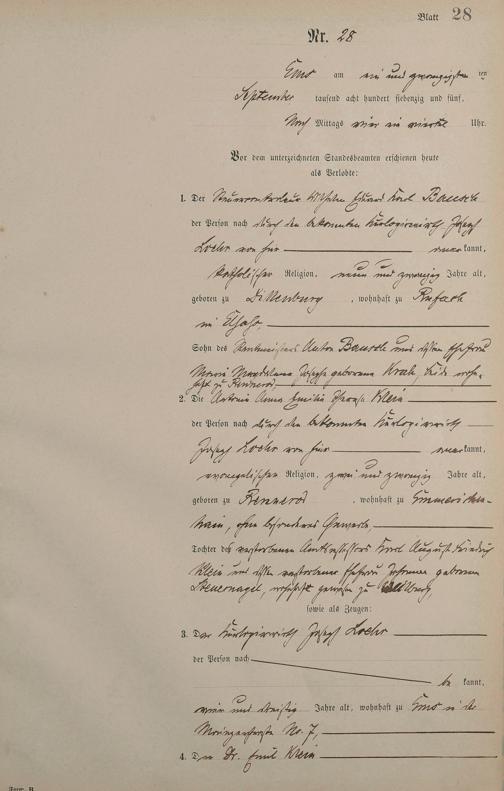 Blatt 28
Nr. 28
Ems am ein und zwanzigsten ten
September tausend acht hundert siebenzig und fünf,
Nach Mittags vier ein viertel Uhr.
Vor dem unterzeichneten Standesbeamten erschienen heute
als Verlobte:
1. Der Wilhelm Eduard Karl Bausch
der Person nach durch den bekannten Kurlogierwirth Joseph
Loehr von hier kannt,
katholischer Religion, neun und zwanzig Jahre alt,
geboren zu Dillenburg, wohnhaft zu Rufach
im Elsaß,
Sohn des Rentmeisters Anton Bausch und dessen Ehefrau
Maria Magdalena Josepha geborene beide wohn-
haft zu Rennerod,
2. Die Antonie Anna Emilie Klein
der Person nach durch den bekannten Kurlogierwirth
Joseph Loehr von hier kannt,
evangelischer Religion, zwei und zwanzig Jahre alt,
geboren zu Rennerod, wohnhaft zu Emmerichen-
hain, ohne besonderes Gewerbe
Tochter des verstorbenen Amtsassessors Karl August Friedrich
Klein und dessen verstorbene Ehefrau Johanna geborene
Steuernagel, wohnhaft gewesen zu
sowie als Zeugen:
3. Der Kurlogierwirth Joseph Loehr
der Person nach
be kannt,
und dreißig Jahre alt, wohnhaft zu Ems in der
Mainzerstraße No. 7,
4. Der Dr. Emil Klein